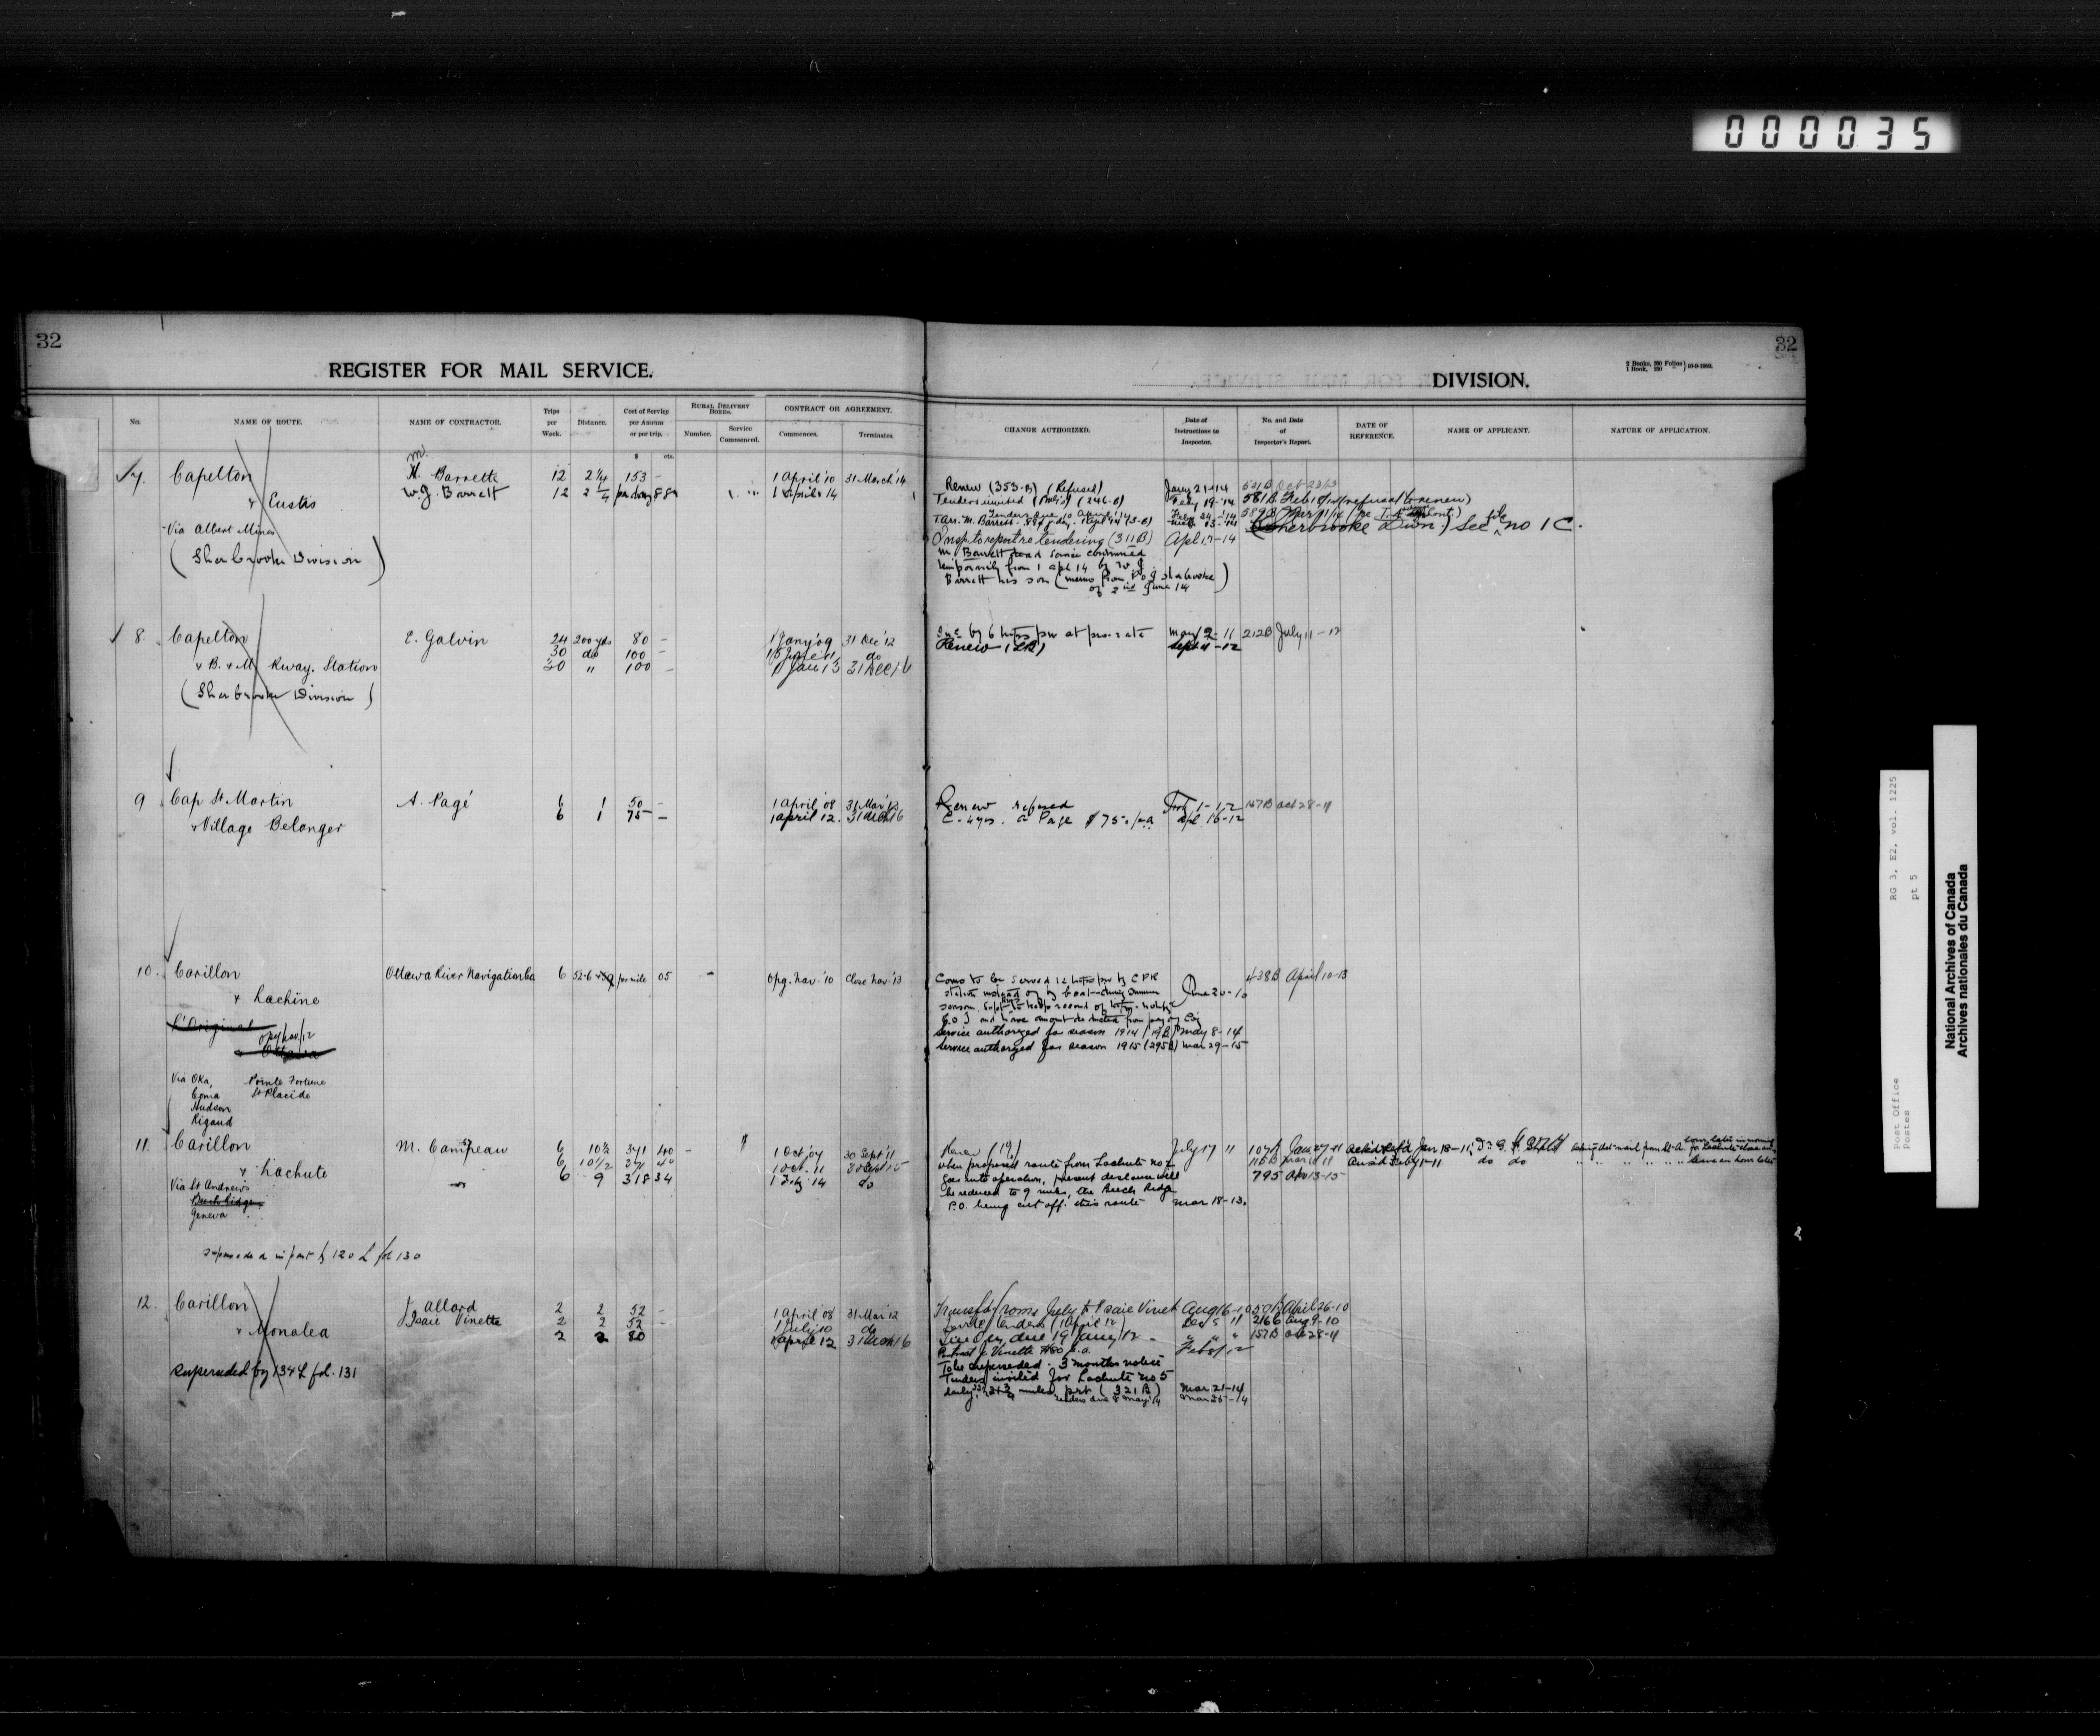 000035
32
REGISTER FOR MAIL SERVICE.
No.
NAME OF ROUTE.
NAME OF CONTRACTOR.
Trips per Week.
Distance.
Cost of Service per Annum or per trip.
$ cts.
RURAL DELIVERY BOXES.
Number.
Service Commenced.
CONTRACT OR AGREEMENT.
Commences.
Terminates.
7. Capelton
& Eustis
Via Albert Mines
(Sherbrooke Division)
M. Barrette 12 2 1/4 153 – 1 April '10 31 March '14
W. J. Barrett 12 2 1/4 88 1 April 14
8. Capelton
& B. & M. Rway. Station
(Sherbrooke Division)
E. Galvin 24 200 yds 80 – 1 Jany '09 31 Dec '12
30 do 100 – do
30 " 100 – 1 Jan 13 31 Dec 16
9 Cap St Martin
& Village Belanger
A. Pagé 6 1 50 – 1 April '08 31 Mar '12
6 1 75 – 1 April 12. 31 Mch 16
10. Carillon
& Lachine
L'Orignal
opg/nav/12
& Ottawa
Via Oka, Pointe Fortune
Como St Placide
Hudson
Rigaud
Ottawa River Navigation Co 6 per mile 05 – Opg. Nav. '10 Close Nav. '13
11. Carillon
& Lachute
Via St Andrews
Beech Ridge
Geneva
M. Campeau 6 10½ 341 40 – 1 Oct '07 30 Sept '11
6 10 1/2 1 Oct. 11 30 Sept 15
6 9 318 34 14 do
120 L fol 130
12. Carillon
& Monalea
Superseded by 134 L fol. 131
J. Allard 2 2 52 – 1 April '08 31 Mar '12
Isaie Vinette 2 2 52 – 1 July 10 do
2 2 80 1 April 12 31 Mch 16
32
DIVISION.
2 Books, 350 Folios
1 Book, 250 "
10-9-1909.
CHANGE AUTHORIZED.
Date of Instructions to Inspector.
No. and Date of Inspector's Report.
DATE OF REFERENCE.
NAME OF APPLICANT.
NATURE OF APPLICATION.
Renew (353-B) (Refused) Jany 21-14 531B Oct 23/13
Tenders invited (246-B) Feby 19-14 581B Feb (refusal to renew)
Tenders due 10 April '14
(Sherbrooke Divn.) See file no 1 C.
Insp. to report re tendering (311B) Apl 17-14
M. Barrett dead service continued
temporarily from 1 Apl 14 by W. J.
Barrett his son (memo from P.O.I Sherbrooke
of 2nd June 14)
by 6 trips pw at pro rata May 9-11 212B July 11-12
Renew (LR) Sept 11-12
Renew refused 157B Oct 28-11
C. 4 yrs. A Page $75. p.a. Apl 16-12
Como to be served 12 trips pw by CPR
station instead of by boat during Summer
season. June 20-10 438B April 10-13
and have amount deducted from pay of Co
Service authorized for season 1914 (19B) May 8-14
Service authorized for season 1915 (295B) Mar 29-15
Renew July 17 11 107B Jan 27-11 Jan 18-11
When proposed route from Lachute no 2
goes into operation, present distance will
be reduced to 9 miles, the Beech Ridge
P.O. being cut off this route Mar 18-13.
115B Mar 11 Feby 1-11 do do
795 Apr 13-15
Transfer from July to Isaie Vinet Aug 16-10 50B April 26-10
Invite tenders (1 April 12) Dec 5 11 216B Aug 9-10
due 19 Jany 12 – " " " 157B Oct 28-11
Contract J. Vinette $80 p.a. Feb 8/12
To be superseded. 3 months notice
Tenders invited for Lachute no 5
daily, miles, prt (321B) Mar 21-14
tenders due 8 May 14 Mar 25-14
RG 3, E2, vol. 1225
pt 5
Post Office
Postes
National Archives of Canada
Archives nationales du Canada